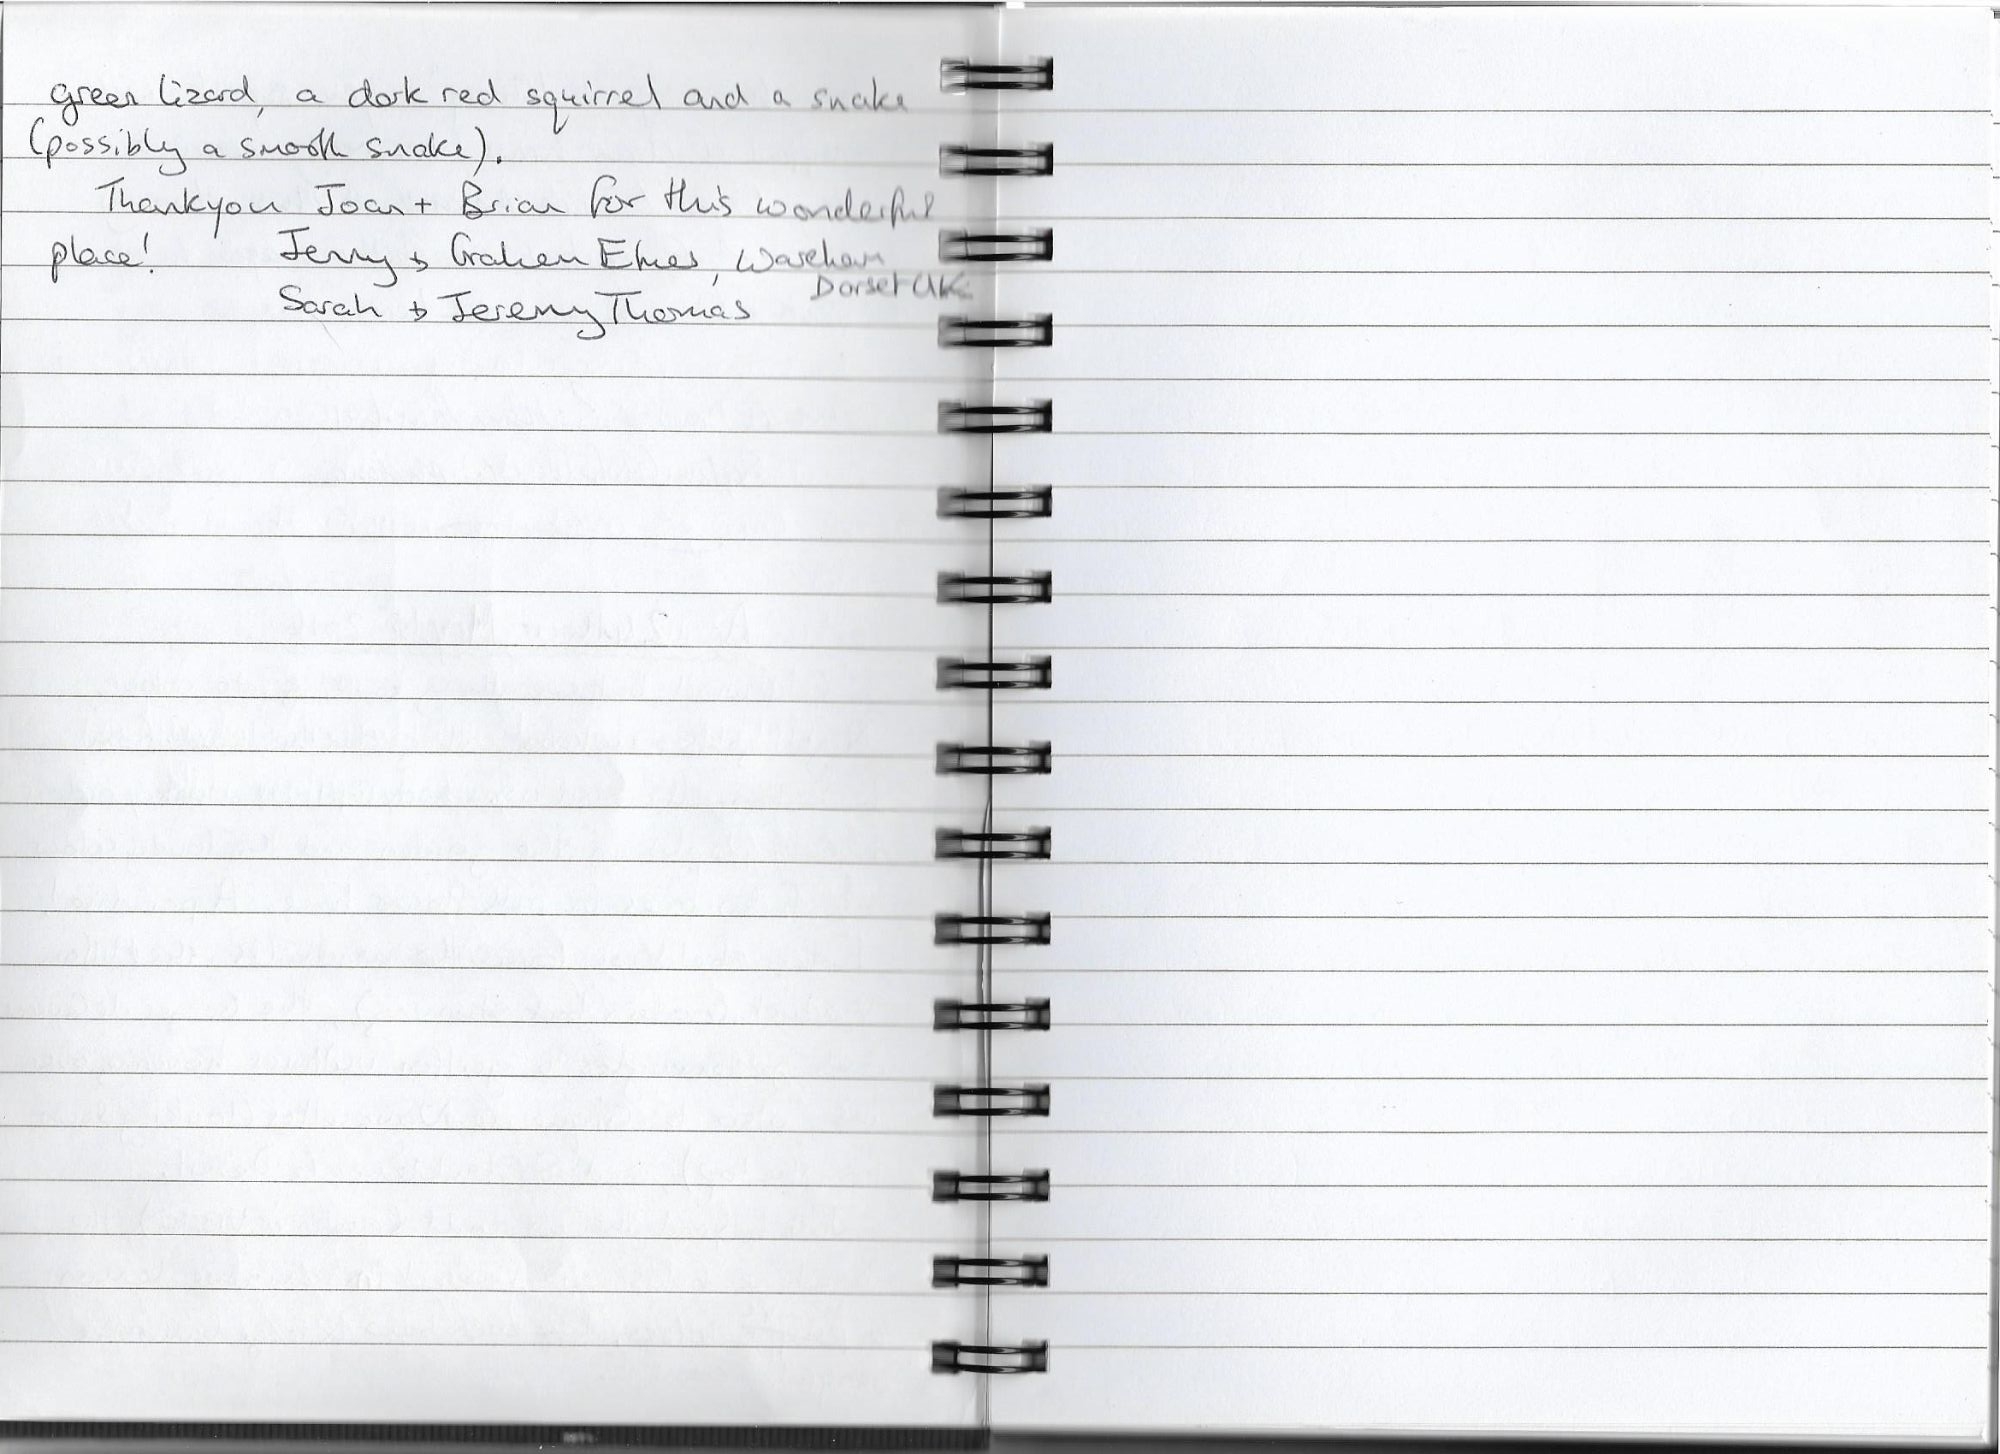 green lizard, a dark red squirrel and a snake
(possibly a smooth snake).
Thankyou Joan + Brian for this wonderful
place! Jenny & Graham Elmes, Wareham
Dorset UK
Sarah & Jeremy Thomas